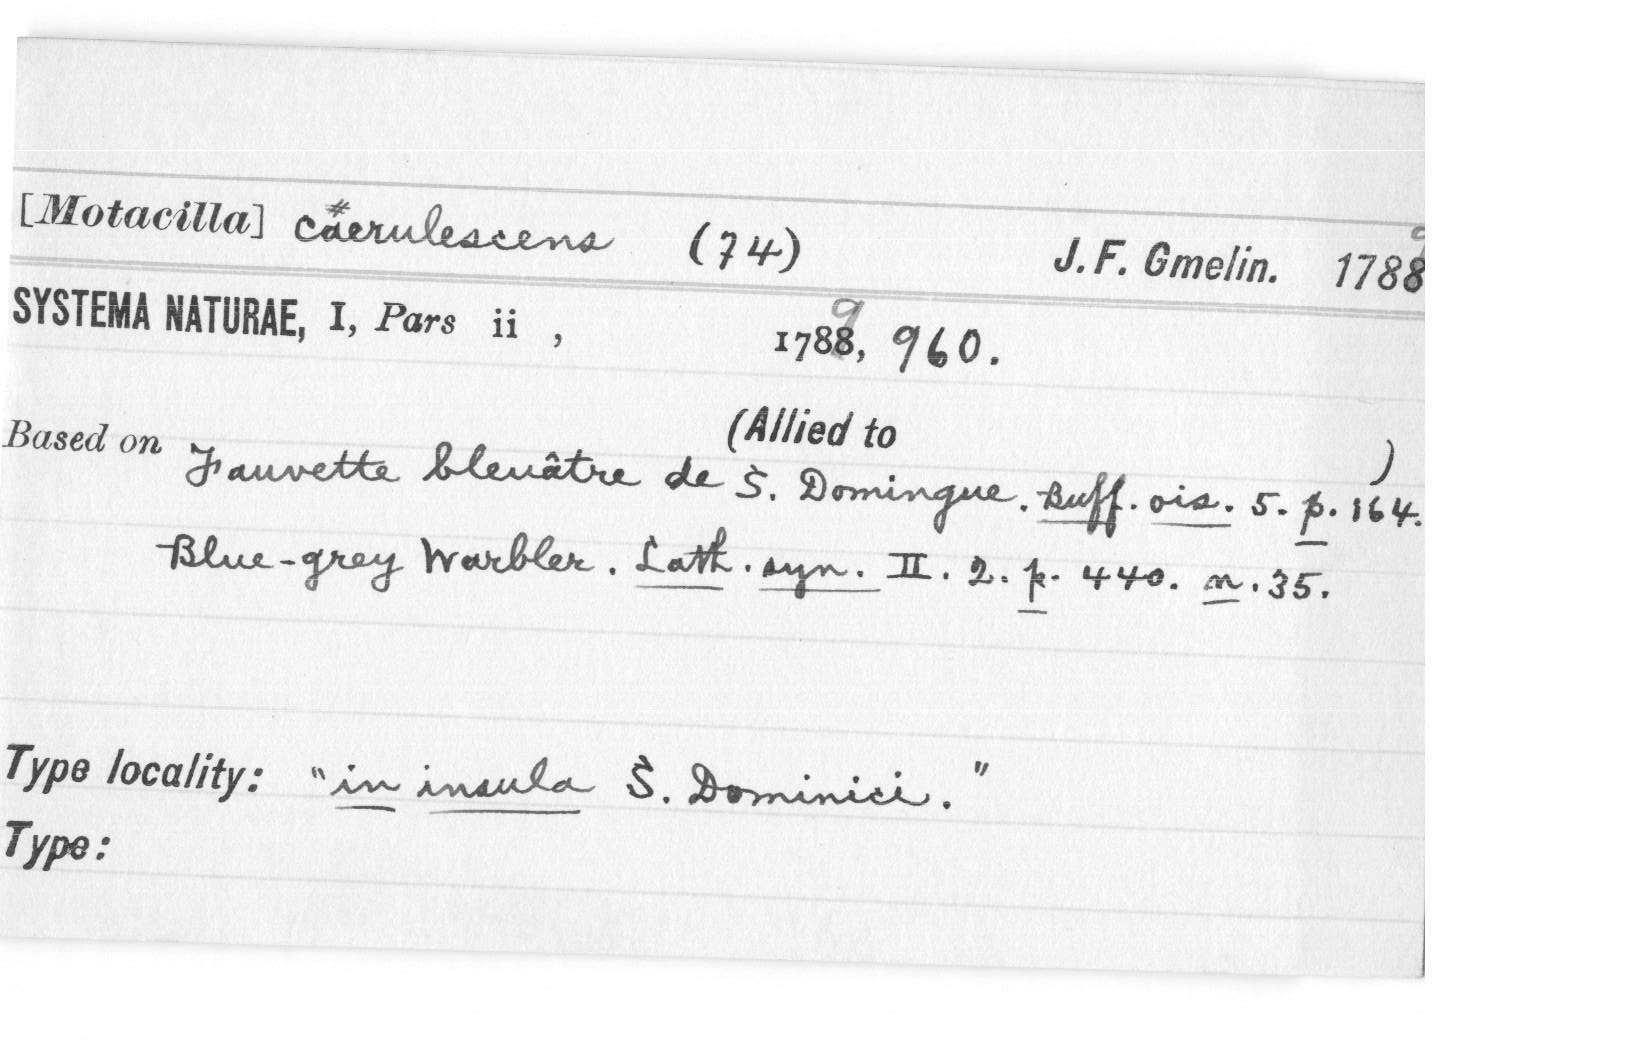 [Motacilla] cærulescens (74) J. F. Gmelin. 1789
SYSTEMA NATURAE, I, Pars ii , 1789, 960.
(Allied to )
Based on Fauvette bleuâtre de S. Domingue. Buff. ois. 5. p. 164.
Blue-grey Warbler. Lath. syn. II. 2. p. 440. n. 35.
Type locality: "in insula S. Dominici."
Type: